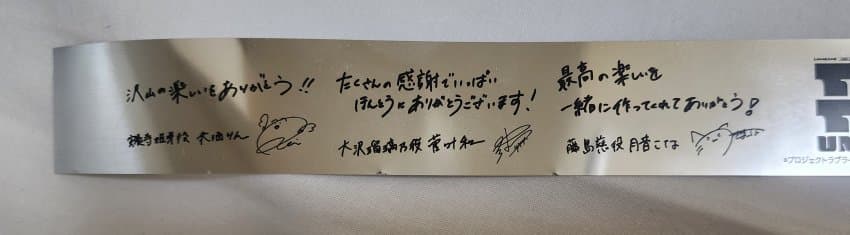 沢山の楽しいをありがとう!!
役 来栖りん
たくさんの感謝でいっぱい
ほんとうにありがとうございます!
大沢瑠璃乃役 菅叶和
最高の楽しいを
一緒に作ってくれてありがとう!
藤島慈役 月音こな
UN
©プロジェクトラブラ